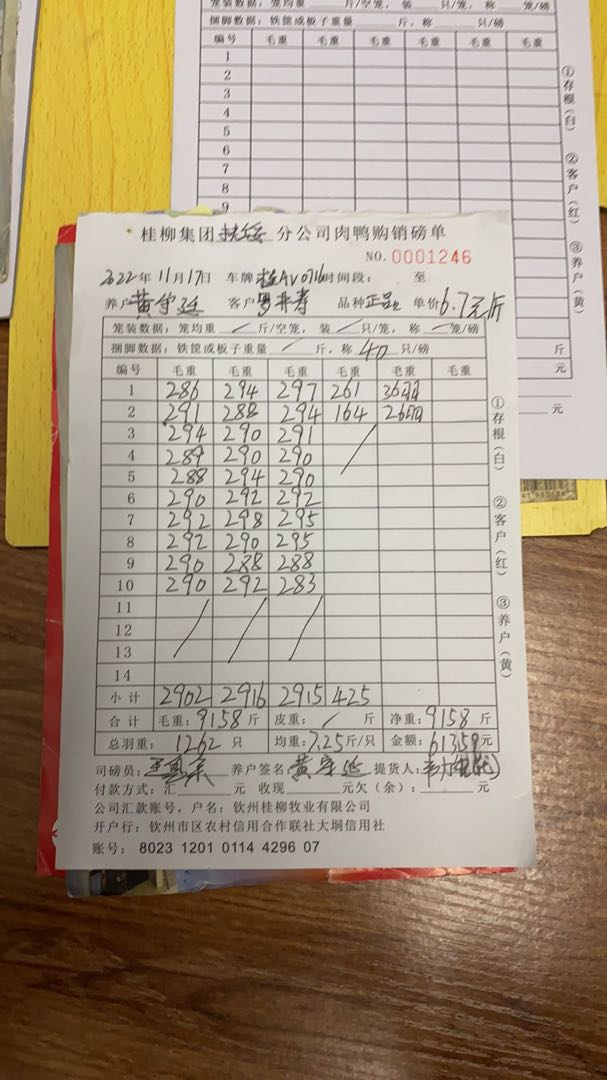 笼装数据：笼均重 斤/空笼，装 只/笼，称 笼/磅
捆脚数据：铁筐或板子重量 斤，称 只/磅
编号 毛重 毛重 毛重 毛重 毛重 毛重
1
2
3
4
5
6
7
8
9
①存根（白） ②客户（红） ③养户（黄）
斤
元
元
桂柳集团扶绥分公司肉鸭购销磅单
NO. 0001246
2022年11月17日 车牌桂AV0716时间段： 至
养户 黄守延 客户 品种 正品 单价6.7元/斤
笼装数据：笼均重 / 斤/空笼，装 / 只/笼，称 / 笼/磅
捆脚数据：铁筐或板子重量 / 斤，称 40 只/磅
编号 毛重 毛重 毛重 毛重 毛重 毛重
1 286 294 297 261 36羽
2 291 288 294 164 26羽
3 294 290 291
4 289 290 290
5 288 294 290
6 290 292 292
7 292 298 295
8 292 290 295
9 290 288 288
10 290 292 283
11
12
13
14
小计 2902 2916 2915 425
合计 毛重：9158斤 皮重： / 斤 净重：9158斤
总羽重： 1262 只 均重：7.25斤/只 金额：61359元
①存根（白） ②客户（红） ③养户（黄）
司磅员： 养户签名：黄守延 提货人：
付款方式：汇 元 收现 元欠（余）： 元
公司汇款账号，户名：钦州桂柳牧业有限公司
开户行：钦州市区农村信用合作联社大垌信用社
账号： 8023 1201 0114 4296 07